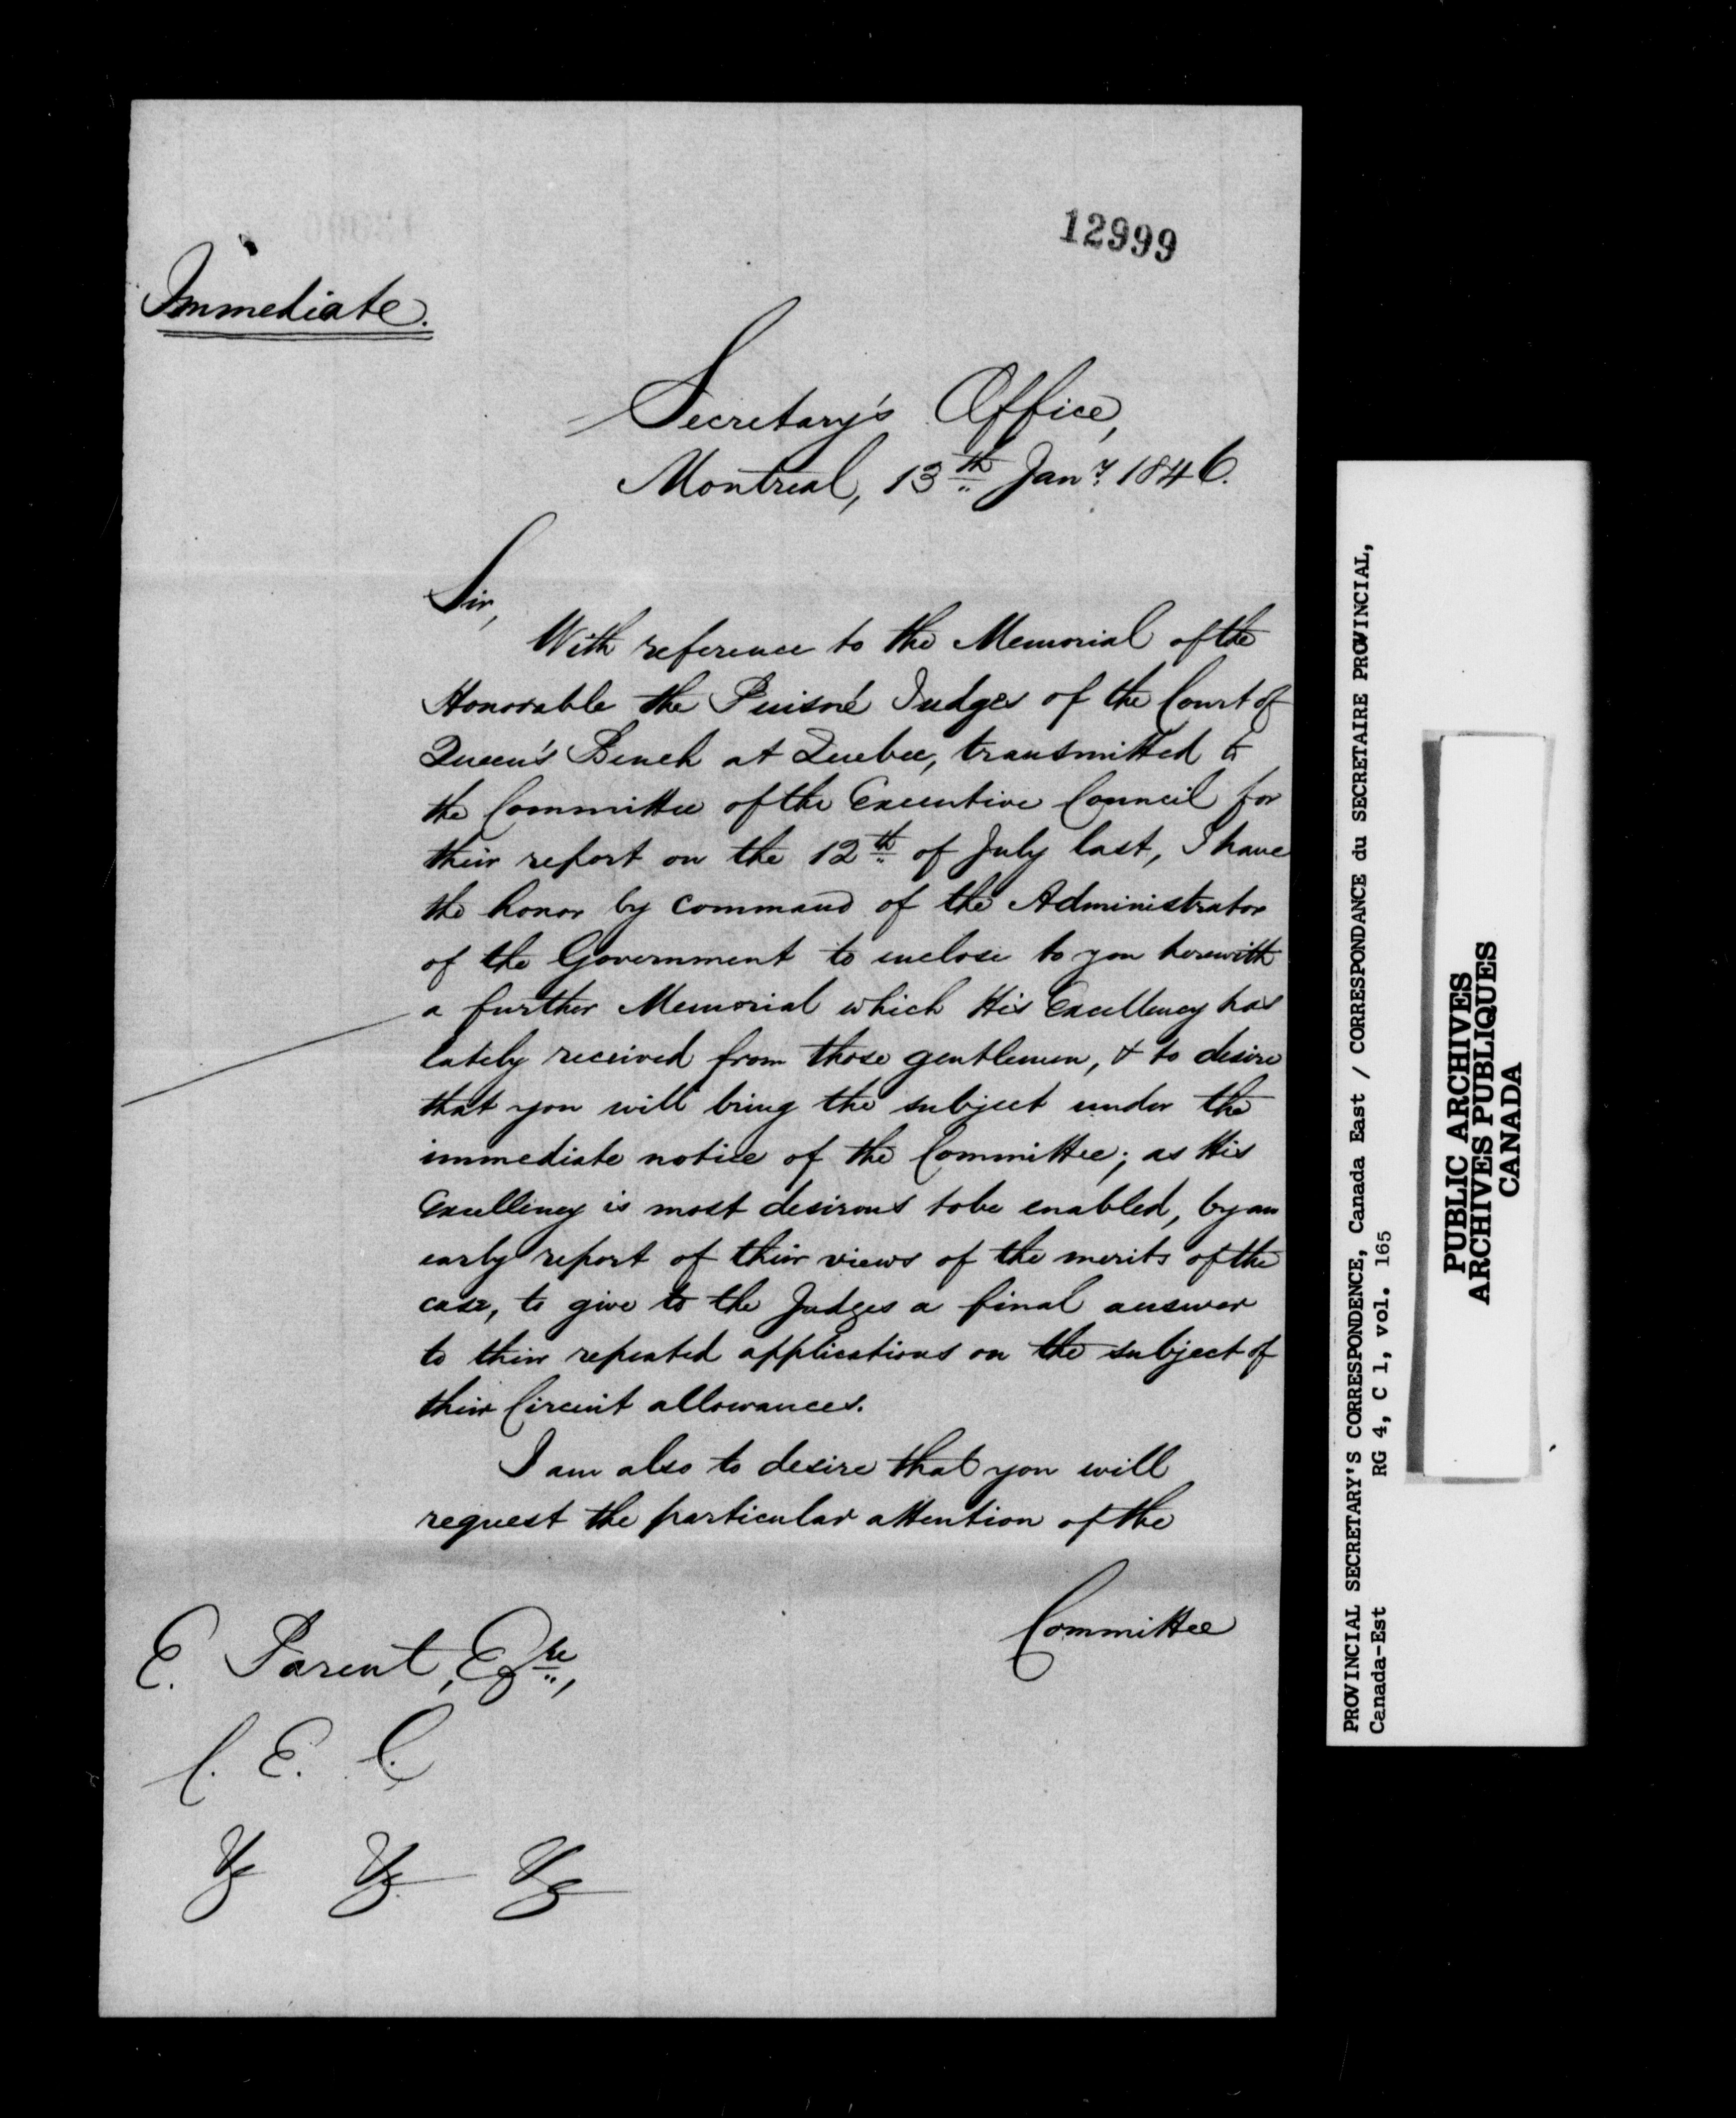 12999
Immediate.
Secretary's Office,
Montreal, 13th Jany. 1846.
Sir,
With reference to the Memorial of the
Honorable the Puisné Judges of the Court of
Queen's Bench at Quebec, transmitted to
the Committee of the Executive Council for
their report on the 12th of July last, I have
the honor by command of the Administrator
of the Government to enclose to you herewith
a further Memorial which His Excellency has
lately received from those gentlemen, & to desire
that you will bring the subject under the
immediate notice of the Committee; as His
Excellency is most desirous to be enabled, by an
early report of their views of the merits of the
case, to give to the Judges a final answer
to their repeated applications on the subject of
their Circuit allowances.
I am also to desire that you will
request the particular attention of the
Committee
E. Parent, Esqre,
C. E. C.
PROVINCIAL SECRETARY'S CORRESPONDENCE, Canada East / CORRESPONDANCE du SECRETAIRE PROVINCIAL,
Canada-Est RG 4, C 1, vol. 165
PUBLIC ARCHIVES
ARCHIVES PUBLIQUES
CANADA